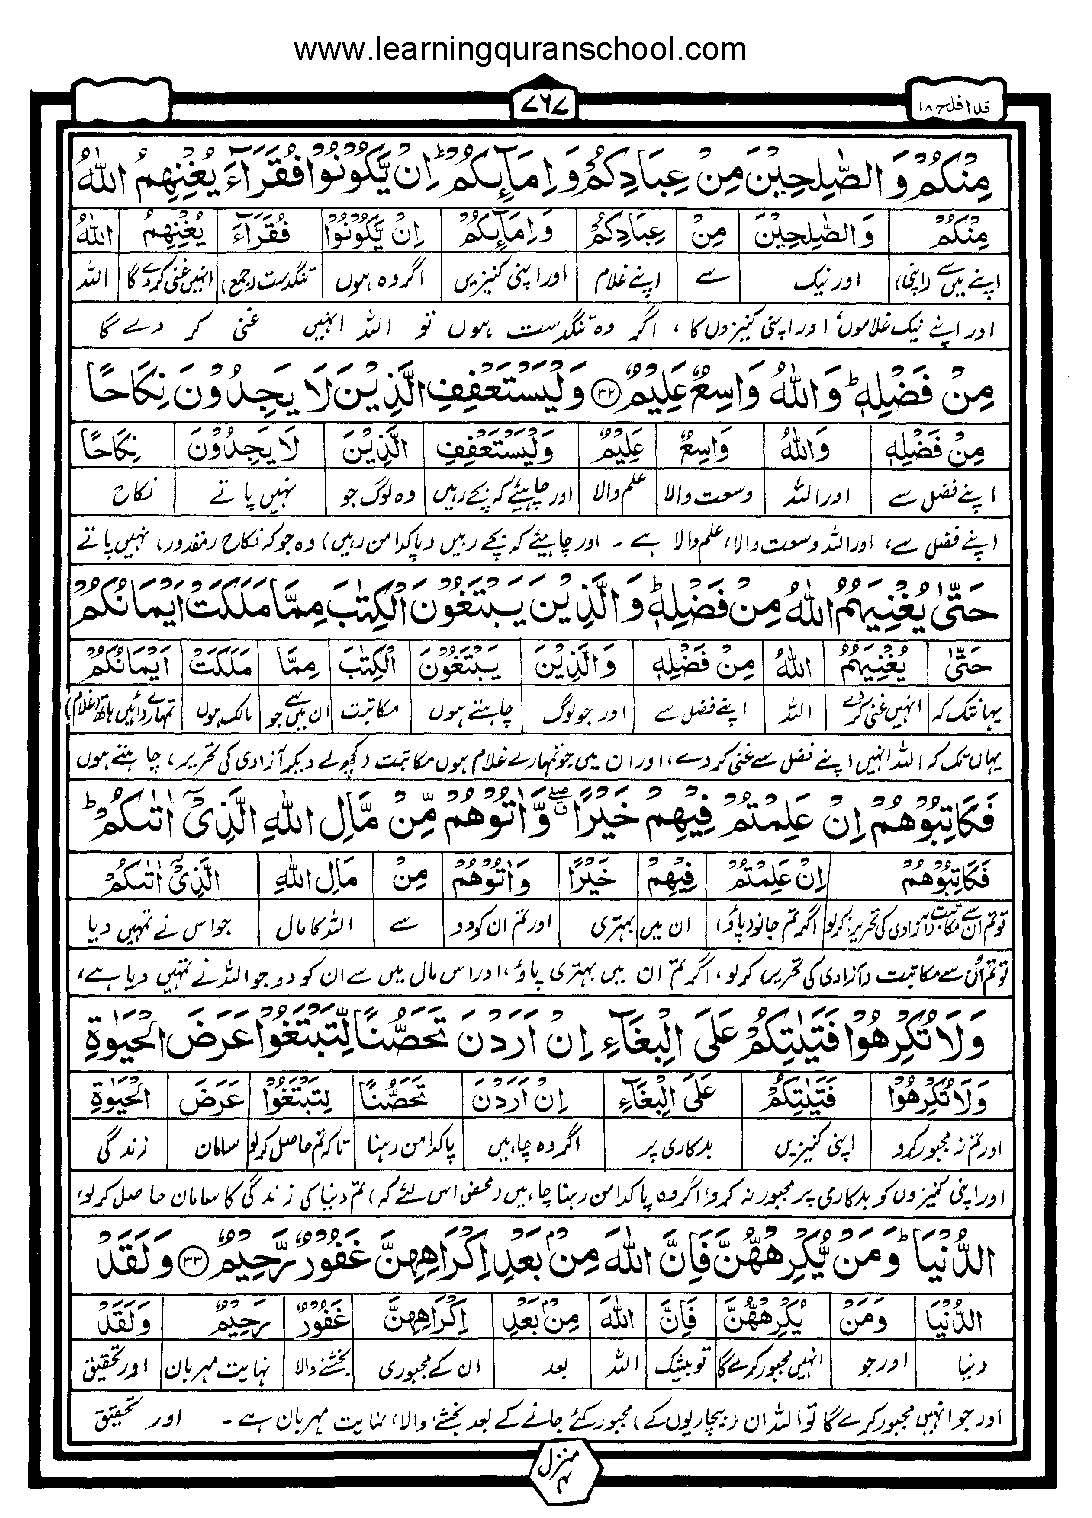 www.learningquranschool.com
قد افلح ۱۸
۷۶۷
مِنْكُمْ وَالصّٰلِحِيْنَ مِنْ عِبَادِكُمْ وَاِمَآئِكُمْ ؕ اِنْ يَّكُوْنُوْا فُقَرَآءَ يُغْنِهِمُ اللّٰهُ
مِنْكُمْ وَالصّٰلِحِيْنَ مِنْ عِبَادِكُمْ وَاِمَآئِكُمْ اِنْ يَّكُوْنُوْا فُقَرَآءَ يُغْنِهِمُ اللّٰهُ
اپنے میں سے (اپنی) اور نیک سے اپنے غلام اور اپنی کنیزیں اگر وہ ہوں تنگدست (جمع) انہیں غنی کردے گا اللہ
اور اپنے نیک غلاموں اور اپنی کنیزوں کا، اگر وہ تنگدست ہوں تو اللہ انہیں غنی کر دے گا
مِنْ فَضْلِهٖ ؕ وَاللّٰهُ وَاسِعٌ عَلِيْمٌ ﴿۳۲﴾ وَلْيَسْتَعْفِفِ الَّذِيْنَ لَا يَجِدُوْنَ نِكَاحًا
مِنْ فَضْلِهٖ وَاللّٰهُ وَاسِعٌ عَلِيْمٌ وَلْيَسْتَعْفِفِ الَّذِيْنَ لَا يَجِدُوْنَ نِكَاحًا
اپنے فضل سے اور اللہ وسعت والا علم والا اور چاہیئے کہ بچے رہیں وہ لوگ جو نہیں پاتے نکاح
اپنے فضل سے، اور اللہ وسعت والا، علم والا ہے ۔ اور چاہیئے کہ بچے رہیں (پاکدامن رہیں) وہ جو کہ نکاح (مقدور) نہیں پاتے
حَتّٰى يُغْنِيَهُمُ اللّٰهُ مِنْ فَضْلِهٖ ؕ وَالَّذِيْنَ يَبْتَغُوْنَ الْكِتٰبَ مِمَّا مَلَكَتْ اَيْمَانُكُمْ
حَتّٰى يُغْنِيَهُمُ اللّٰهُ مِنْ فَضْلِهٖ وَالَّذِيْنَ يَبْتَغُوْنَ الْكِتٰبَ مِمَّا مَلَكَتْ اَيْمَانُكُمْ
یہانتک کہ انہیں غنی کردے اللہ اپنے فضل سے اور جو لوگ چاہتے ہوں مکاتبت ان میں سے جو مالک ہوں تمہارے دائیں ہاتھ (غلام)
یہاں تک کہ اللہ انہیں اپنے فضل سے غنی کر دے، اور ان میں جو تمہارے غلام ہوں مکاتبت (کچھ لے دیکر آزادی کی تحریر) چاہتے ہوں
فَكَاتِبُوْهُمْ اِنْ عَلِمْتُمْ فِيْهِمْ خَيْرًا ۖ وَّاٰتُوْهُمْ مِّنْ مَّالِ اللّٰهِ الَّذِيْٓ اٰتٰىكُمْ ؕ
فَكَاتِبُوْهُمْ اِنْ عَلِمْتُمْ فِيْهِمْ خَيْرًا وَاٰتُوْهُمْ مِنْ مَالِ اللّٰهِ الَّذِيْٓ اٰتٰىكُمْ
تو تم ان سے مکاتبت (آزادی کی تحریر) کرلو اگر تم جانو (پاؤ) ان میں بہتری اور تم ان کو دو سے اللہ کا مال جو اس نے تمہیں دیا
تو تم اُن سے مکاتبت (آزادی کی تحریر) کر لو، اگر تم ان میں بہتری پاؤ، اور اس مال میں سے ان کو دو جو اللہ نے تمہیں دیا ہے،
وَلَا تُكْرِهُوْا فَتَيٰتِكُمْ عَلَى الْبِغَآءِ اِنْ اَرَدْنَ تَحَصُّنًا لِّتَبْتَغُوْا عَرَضَ الْحَيٰوةِ
وَلَا تُكْرِهُوْا فَتَيٰتِكُمْ عَلَى الْبِغَآءِ اِنْ اَرَدْنَ تَحَصُّنًا لِتَبْتَغُوْا عَرَضَ الْحَيٰوةِ
اور تم نہ مجبور کرو اپنی کنیزیں بدکاری پر اگر وہ چاہیں پاکدامن رہنا تاکہ تم حاصل کرلو سامان زندگی
اور اپنی کنیزوں کو بدکاری پر مجبور نہ کرو اگر وہ پاکدامن رہنا چاہیں (محض اس لئے کہ) تم دنیا کی زندگی کا سامان حاصل کر لو،
الدُّنْيَا ؕ وَمَنْ يُّكْرِهْهُّنَّ فَاِنَّ اللّٰهَ مِنْۢ بَعْدِ اِكْرَاهِهِنَّ غَفُوْرٌ رَّحِيْمٌ ﴿۳۳﴾ وَلَقَدْ
الدُّنْيَا وَمَنْ يُكْرِهْهُّنَّ فَاِنَّ اللّٰهَ مِنْۢ بَعْدِ اِكْرَاهِهِنَّ غَفُوْرٌ رَحِيْمٌ وَلَقَدْ
دنیا اور جو انہیں مجبور کرے گا تو بیشک اللہ بعد ان کے مجبوری بخشنے والا نہایت مہربان اور تحقیق
اور جو انہیں مجبور کرے گا تو اللہ ان (بیچاریوں کے) مجبور کئے جانے کے بعد بخشنے والا، نہایت مہربان ہے ۔ اور تحقیق
منزل ۴